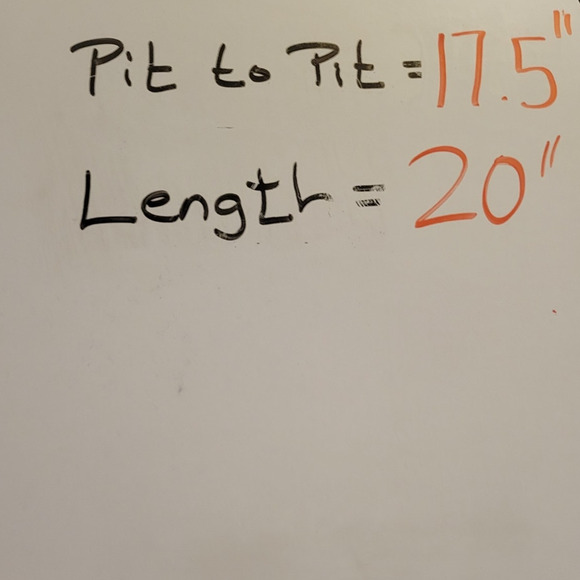 Pit to Pit = 17.5"
Length = 20"